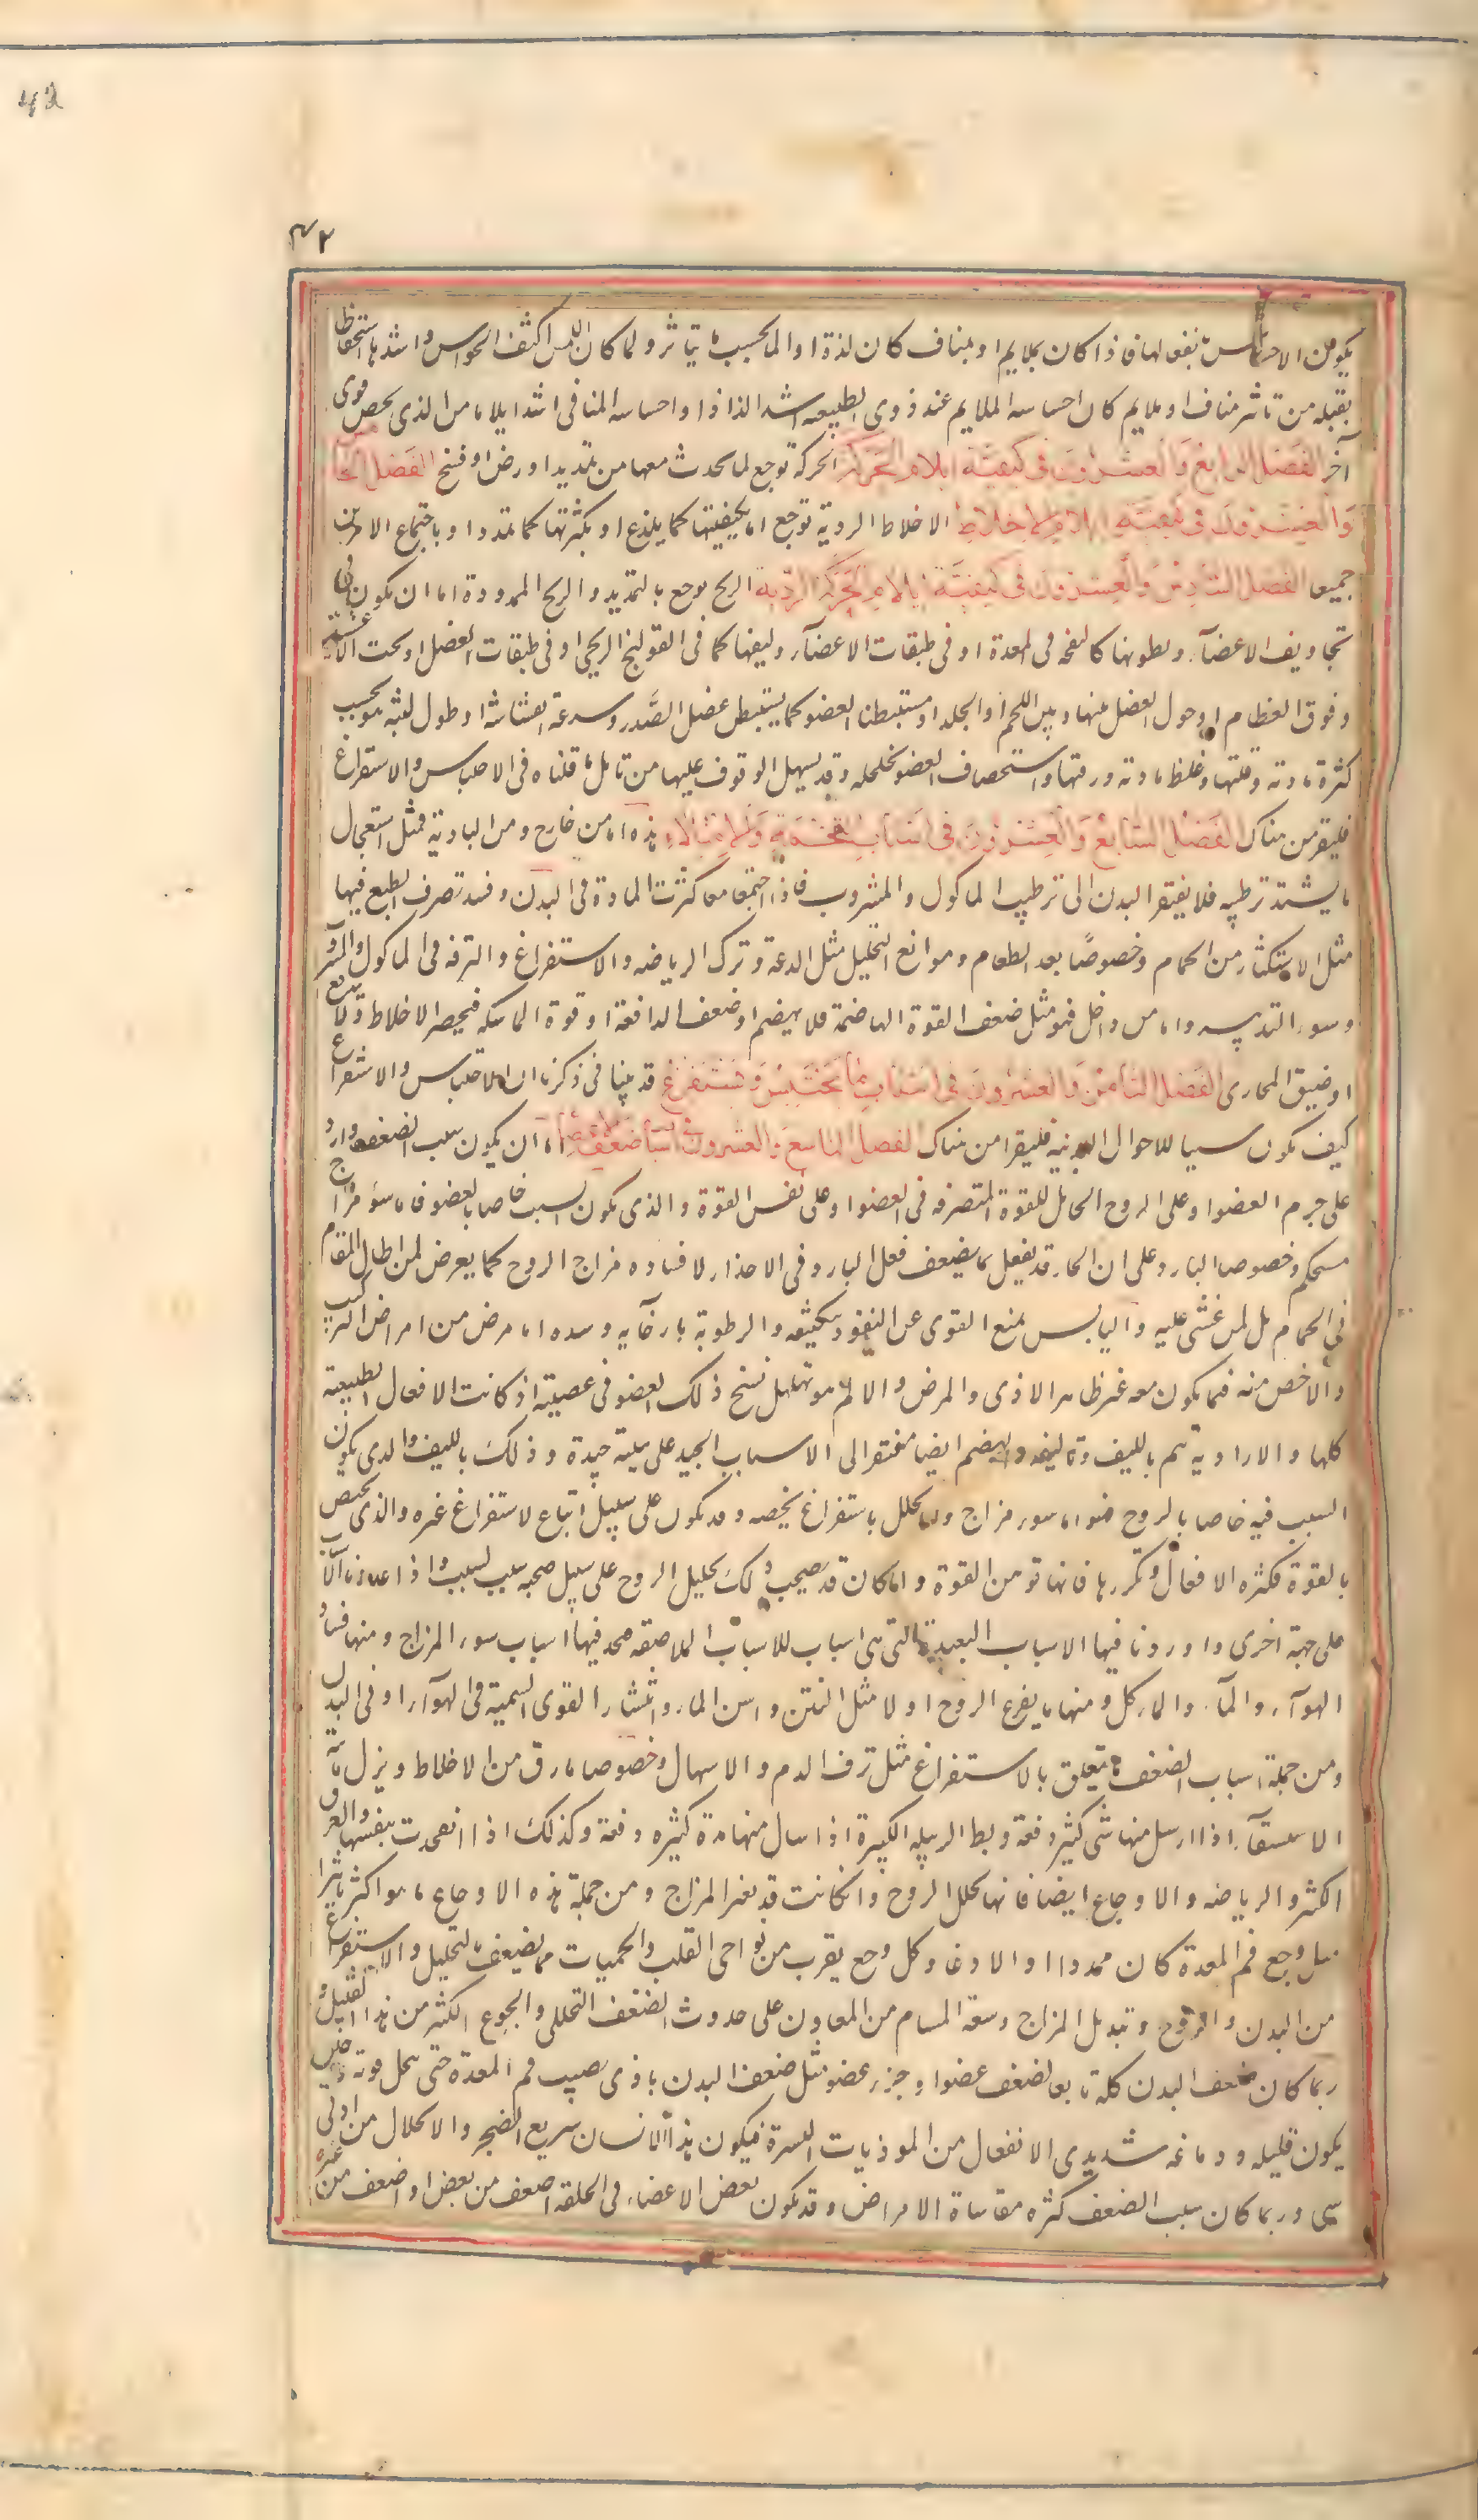 42
۴۲
يكون من الاحساس بفعالها فاذا كان بملايم او بمناف كان لذة او الما بحسب ما يتاثر ولما كان اللمس اكثف الحواس واشدها استحفاظا
يقبله من تاثير مناف او ملايم كان احساسه الملايم عند ذوى الطبيعه اشد الذاذا واحساسه المنافى اشد ايلاما من الذى يخص قوى
آخر الفصل الرابع والعشرون فى كيفية ايلام الحركة الحركة توجع لما يحدث معها من تمديد او رض او فسخ الفصل الخامس
والعشرون فى كيفية ايلام الاخلاط الاخلاط الردية توجع اما بكيفيتها كما يلذع او بكثرتها كما تمدد او باجتماع الامرين
جميعا الفصل السادس والعشرون فى كيفية ايلام الحركة الردية الريح يوجع بالتمديد والريح الممددة اما ان يكون فى
تجاويف الاعضآء وبطونها كالنفخه فى المعدة او فى طبقات الاعضآء وليفها كما فى القولنج الريحى او فى طبقات العضل او تحت الاغشية
وفوق العظام او حول العضل بينها وبين اللحم او الجلد او مستبطنا العضو كما يستبطن عضل الصدر وسرعة انفشاشه او طول لبثه هو بحسب
كثرة مادته وقلتها وغلظ مادته ورقتها واستحصاف العضو وتخلخله وقد يسهل الوقوف عليها من تامل ما قلناه فى الاحتباس والاستفراغ
فليقرء من هناك الفصل السابع والعشرون فى اسباب التخمة والامتلاء هذه اما من خارج ومن البادية فمثل استعمال
ما يشتد ترطيبه فلا يفتقر البدن الى ترطيب الماكول والمشروب فاذا اجتمعا معا كثرت المادة فى البدن وفسد تصرف الطبع فيها
مثل الاستكثار من الحمام وخصوصًا بعد الطعام وموانع التحليل مثل الدعة وترك الرياضه والاستفراغ والترفه فى الماكول والمشروب
وسوء التدبير واما من داخل فهو مثل ضعف القوة الهاضمة فلا يهضم او ضعف الدافعة او قوة الماسكه فيحصر الاخلاط ولا يندفع
او ضيق المجارى الفصل الثامن والعشرون فى اسباب ما يحتبس ويستفرغ قد بينا فى ذكرنا ان الاحتباس والاستفراغ
كيف يكون سببا للاحوال البدنيه فليقرا من هناك الفصل التاسع والعشرون فى اسباب ضعف الاعضاء اما ان يكون سبب الضعف واردا
على جرم العضو او على الروح الحامل للقوة المتصرفه فى العضو او على نفس القوة والذى يكون السبب خاصا بالعضو فاما سوء مزاج
مستحكم وخصوصا البارد على ان الحار قد يفعل بما يضعف فعل البارد فى الاخدار لافساده مزاج الروح كما يعرض لمن اطال المقام
فى الحمام بل لمن غشى عليه واليابس يمنع القوى عن النفوذ بتكثيفه والرطوبة بارخآيه وسده اما مرض من امراض التركيب
والاخص منه فما يكون معه غير ظاهر الاذى والمرض والالم هو تهلهل نسج ذلك العضو فى عصبيته اذ كانت الافعال الطبيعية
كلها والارادية تتم بالليف وتاليفه والهضم ايضا مفتقر الى الامساك الجيد على هيئة جيدة وذلك بالليف والذى يكون
السبب فيه خاصا بالروح فهو اما سوء مزاج واما تحلل باستفراغ يخصه وقد يكون على سبيل اتباع لاستفراغ غيره والذى يختص
بالقوة فكثرة الافعال وتكررها فانها توهن القوة واما كان قد يصحب ذلك تحليل الروح على سبيل صحبه سبب لسبب واذا عددنا الاسباب
على جهة اخرى واوردنا فيها الاسباب البعيدة التى هى اسباب للاسباب الملاصقه فنجد فيها اسباب سوء المزاج ومنها فساد
الهوآء والمآء والماكل ومنها ما يفزع الروح اولا مثل النتن واسن الماء وانتشار القوى السمية فى الهوآء او فى البدن
ومن جملة اسباب الضعف ما يتعلق بالاستفراغ مثل نزف الدم والاسهال وخصوصا ما رق من الاخلاط وبزل مائية
الاستسقآء اذا ارسل منها شئ كثير دفعة وبط الدبيله الكبيرة اذا سال منها مدة كثيره دفعة وكذلك اذا انفجرت بنفسها والعرق
الكثير والرياضه والاوجاع ايضا فانها تحلل الروح وان كانت قد يغير المزاج ومن جملة هذه الاوجاع ما هو اكثر تاثيرا
مثل وجع فم المعدة كان ممددا او لاذغا وكل وجع يقرب من نواحى القلب والحميات مما يضعف بالتحليل والاستفراغ
من البدن والروح وتبديل المزاج وسعة المسام من المعاون على حدوث الضعف التحللى والجوع الكثير من هذا القبيل و
ربما كان ضعف البدن كله تابعا لضعف عضو او جزء عضو مثل ضعف البدن باذى يصيب فم المعدة حتى يحل قوته
يكون قليله ودماغه شديدى الانفعال من الموذيات اليسيرة فيكون هذا الانسان سريع الضجر والانحلال من ادنى
شى وربما كان سبب الضعف كثره مقاساة الامراض وقد يكون بعض الاعضاء فى الخلقه اضعف من بعض او اضعف من غيره